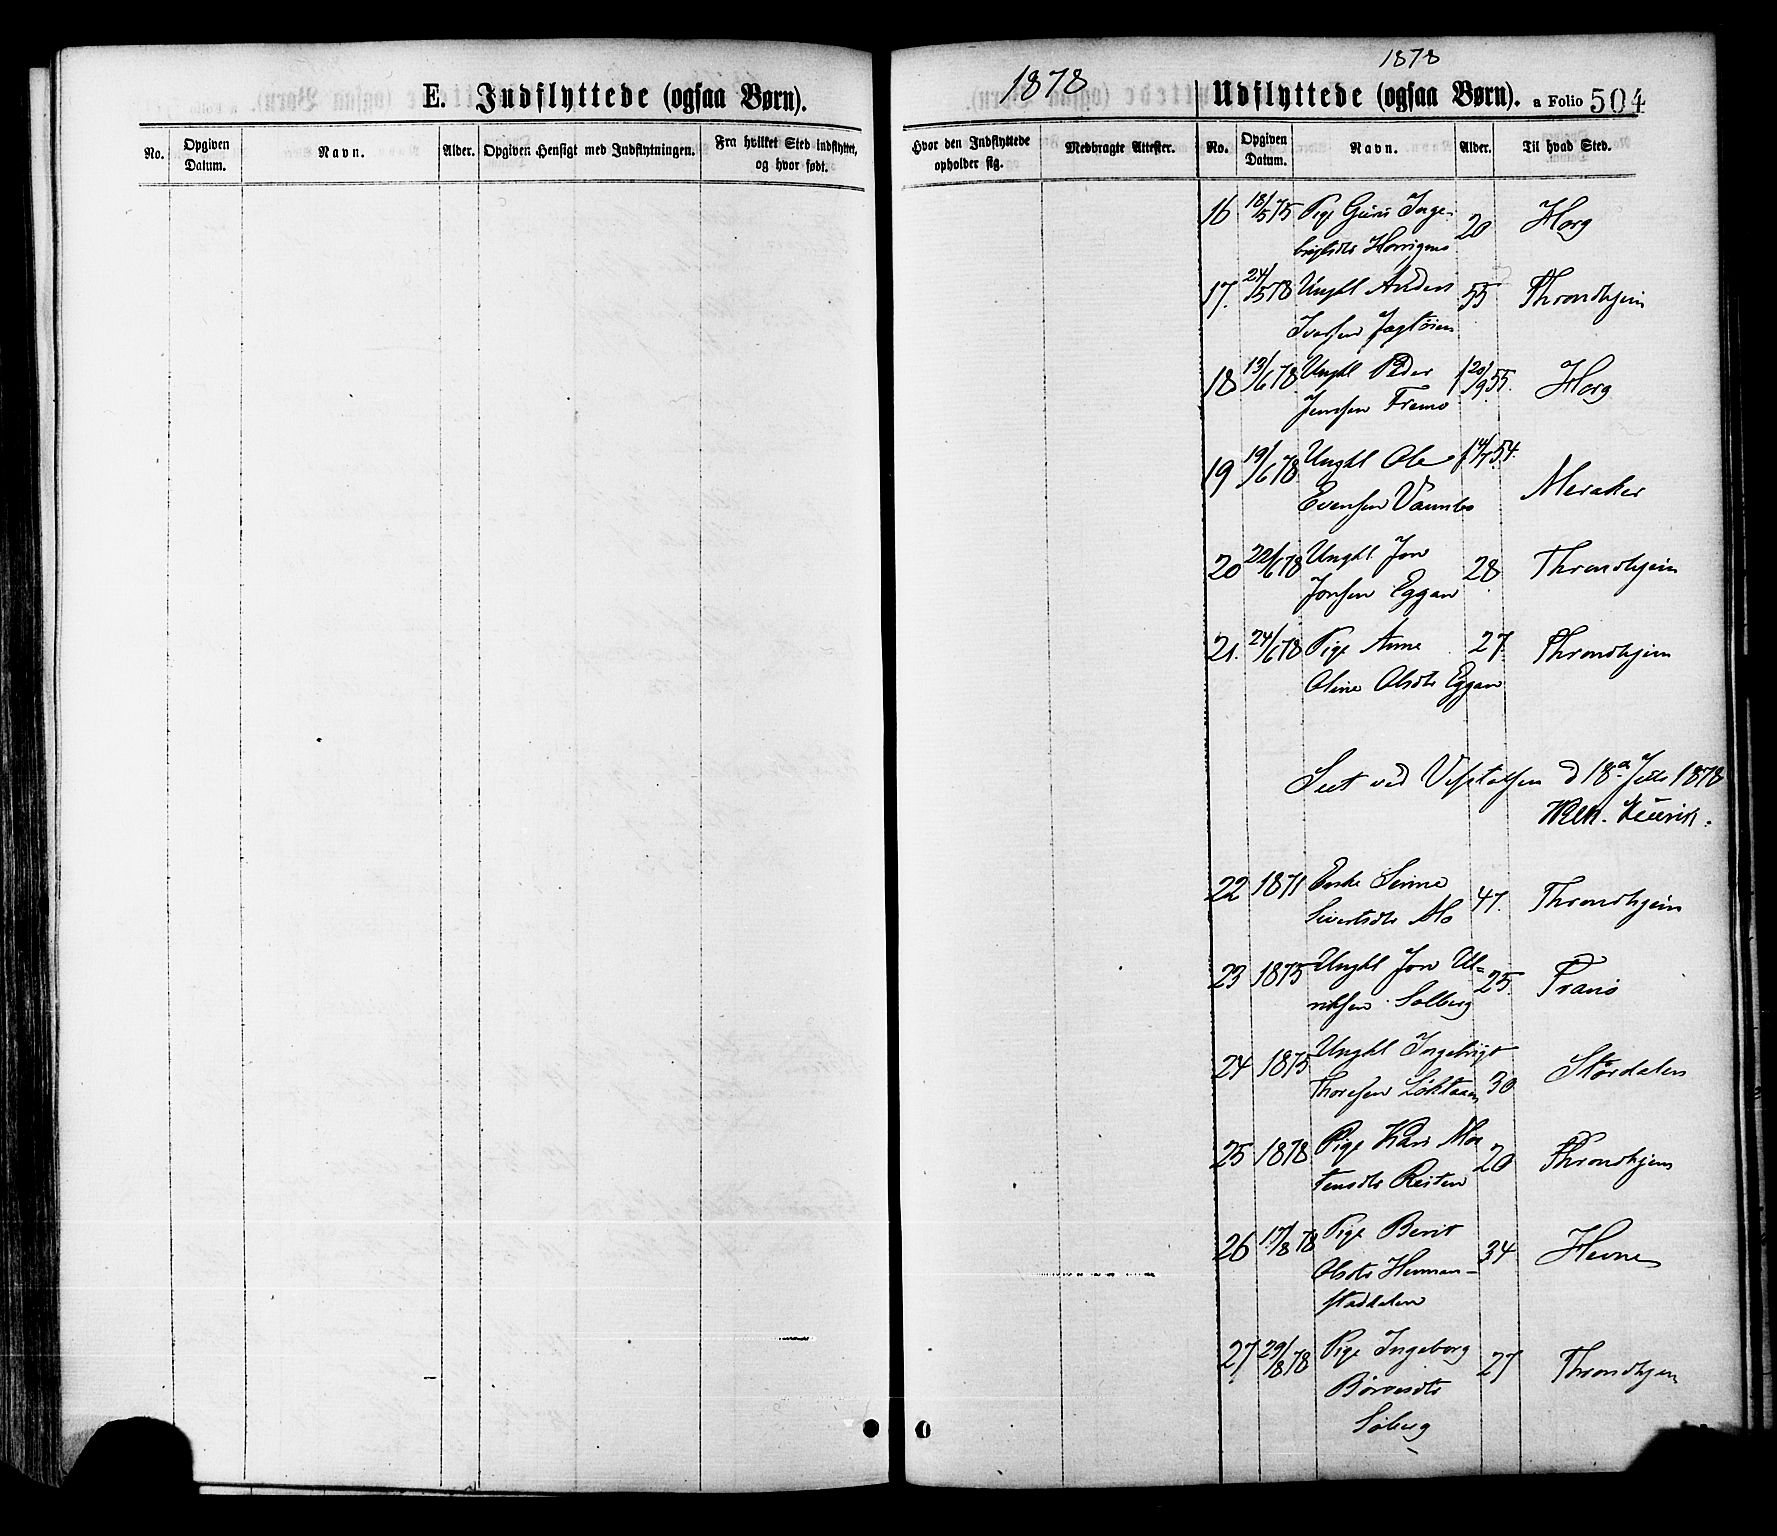 E. Indflyttede (ogsaa Børn).
No.
Opgiven Datum.
Navn.
Alder.
Opgiven Hensigt med Indflytningen.
Fra hvilket Sted indflyttet, og hvor født.
1878
1878
Udflyttede (ogsaa Børn). a Folio 504
Hvor den Indflyttede opholder sig.
Medbragte Attester.
No.
Opgiven Datum.
Navn.
Alder.
Til hvad Sted.
16 18/5 75 Pige Guri Inge- 20 Horg
brigtsdtr
17. 24/5 78 Ungkl Anders 55 Throndhjem
Iversen
18 13/6 78 Ungkl Peder f 20/9 55. Horg
Jensen Fremo
19 19/6 78 Ungkl Ole f 14/7 54. Meraker
Evensen
20 22/6 78 Ungkl Jon 28. Throndhjem
Jonsen Eggan
21. 24/6 78 Pige Anne 27. Throndhjem
Oline Olsdtr Eggan
Seet ved Visitatsen d 18de Juli 1878
22 1871 Enke 47. Throndhjem
Sivertsdtr Mo
23 1875 Ungkl Jon Ul- 25. Tranø
riksen Solberg
24 1875 Ungkl Ingebrigt 30 Størdalen
Thoresen Løktaaen
25 1878 Pige Kari Mor 20 Throndhjem
tensdtr Reiten
26 17/8 78 Pige Berit 34 Hevne
Olsdtr Herman-
staddalen
27 29/8 78 Pige Ingeborg 27 Throndhjem
Børresdtr
Søberg